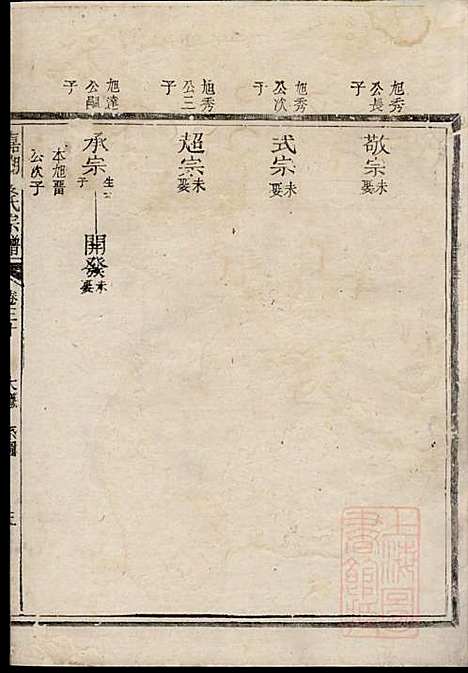 旭秀公長子
敬宗 未娶
旭秀公次子
式宗 未娶
旭秀公三子
超宗 未娶
旭達公嗣子
承宗 生一子
本旭晉公次子
開發 未娶
氏宗譜
卷三十
系圖
上海圖書館藏